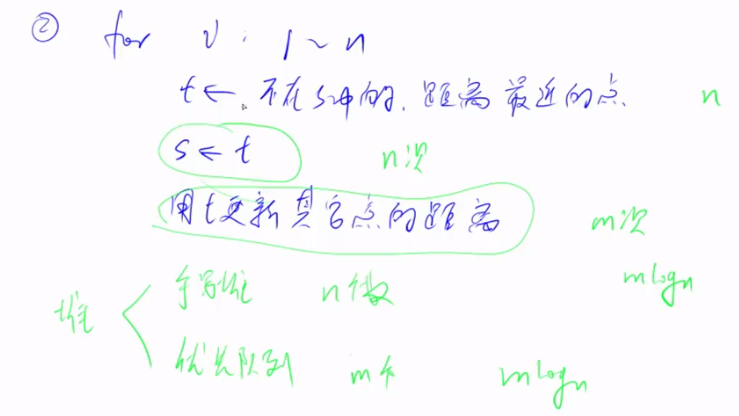 ② for i : 1 ~ n
t ← 不在S中的、距离最近的点 n
s ← t n次
用t更新其它点的距离 m次
mlogn
堆 手写堆 n个数
优先队列 m个 mlogn